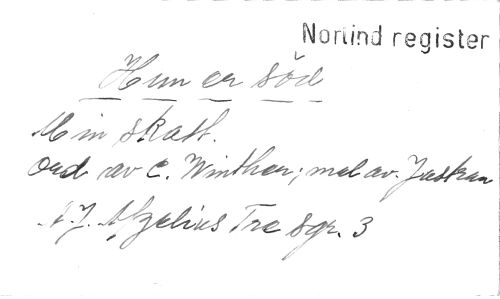 Norlind register
Hun er söd
Min skatt.
Ord av C. Winther; mel. av Jastrau
A. J. Afzelius Tre sgr. 3